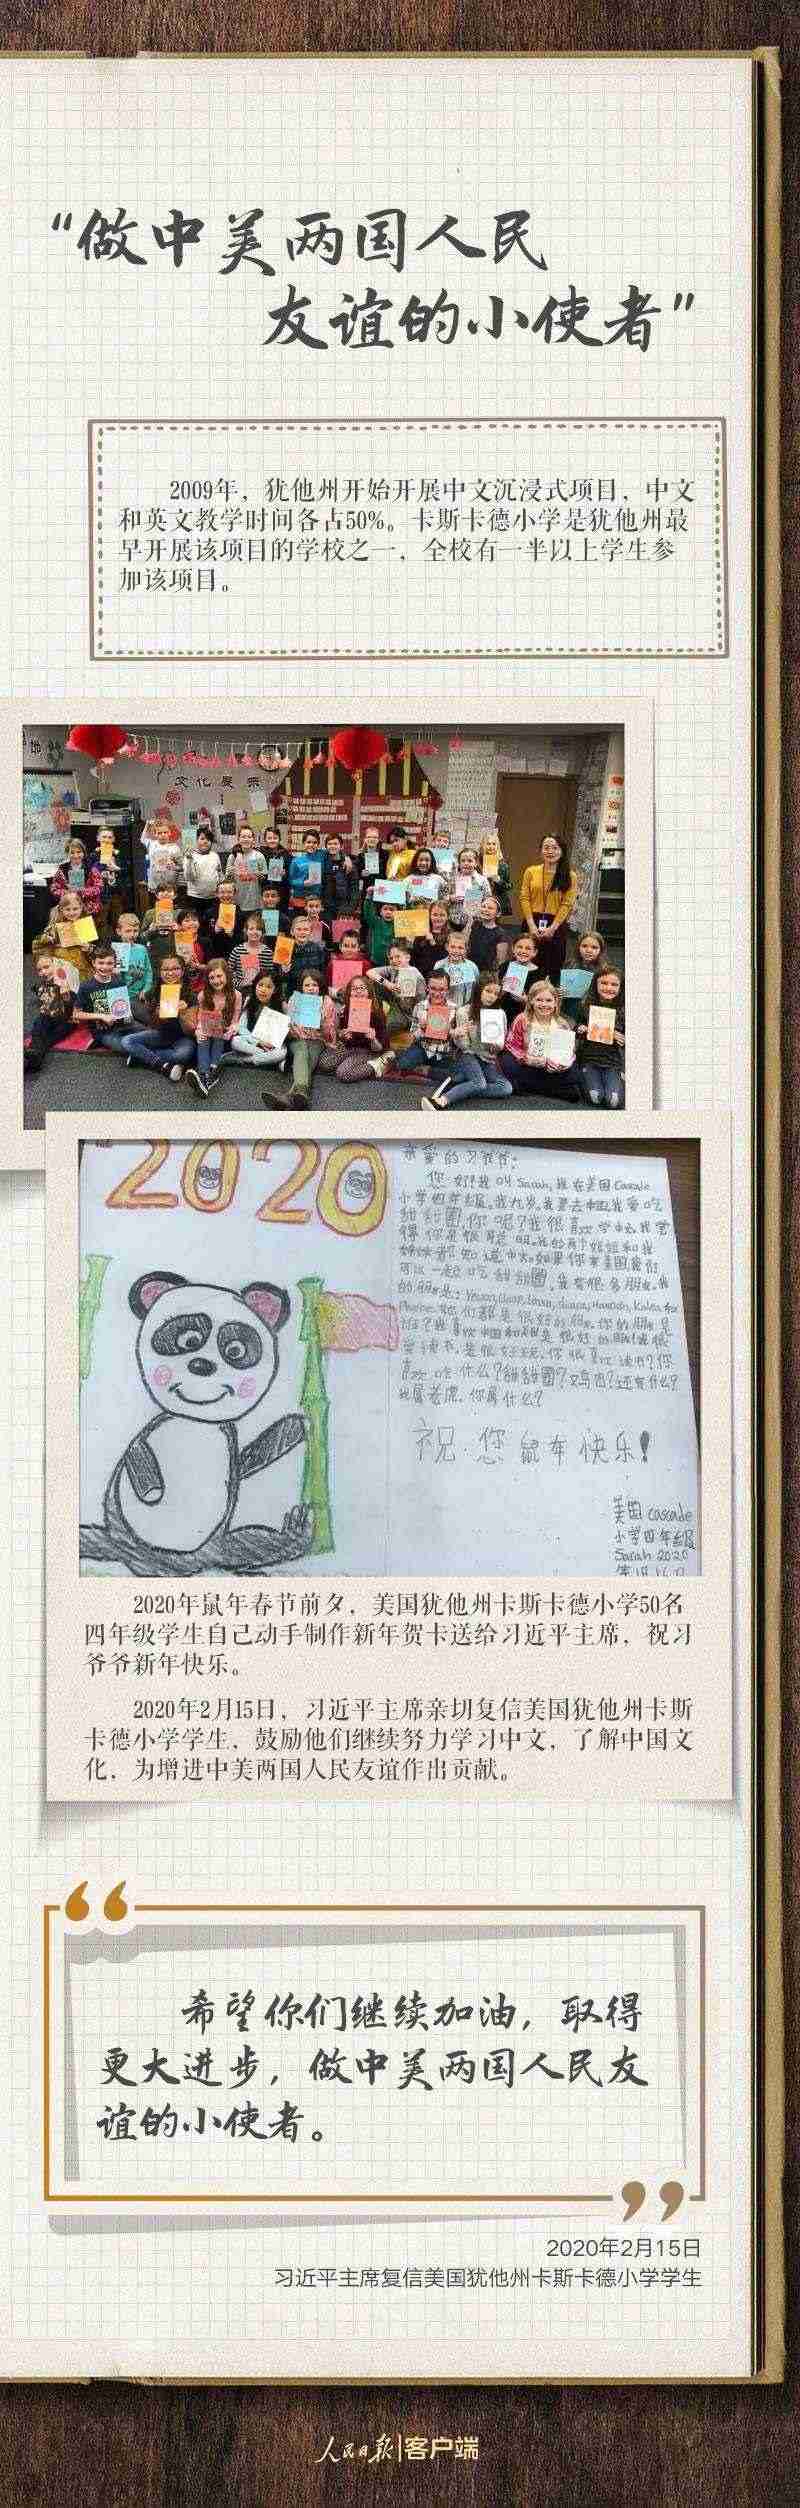 “做中美两国人民
友谊的小使者”
2009年，犹他州开始开展中文沉浸式项目，中文
和英文教学时间各占50%。卡斯卡德小学是犹他州最
早开展该项目的学校之一，全校有一半以上学生参
加该项目。
文化展示
2020
亲爱的习爷爷：
您好！我叫Sarah，我在美国Cascade
小学四年级。我九岁。我要去中国。我爱吃
甜甜圈，你呢？我很喜欢学中文。我觉
祝您鼠年快乐！
美国cascade
小学四年级
Sarah 2020
2020年鼠年春节前夕，美国犹他州卡斯卡德小学50名
四年级学生自己动手制作新年贺卡送给习近平主席，祝习
爷爷新年快乐。
2020年2月15日，习近平主席亲切复信美国犹他州卡斯
卡德小学学生，鼓励他们继续努力学习中文，了解中国文
化，为增进中美两国人民友谊作出贡献。
希望你们继续加油，取得
更大进步，做中美两国人民友
谊的小使者。
2020年2月15日
习近平主席复信美国犹他州卡斯卡德小学学生
人民日报|客户端